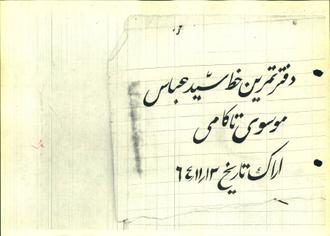 دفتر تمرین خط سید عباس
موسوی تاکامی
اراک تاریخ ٦٤/١١/١٣